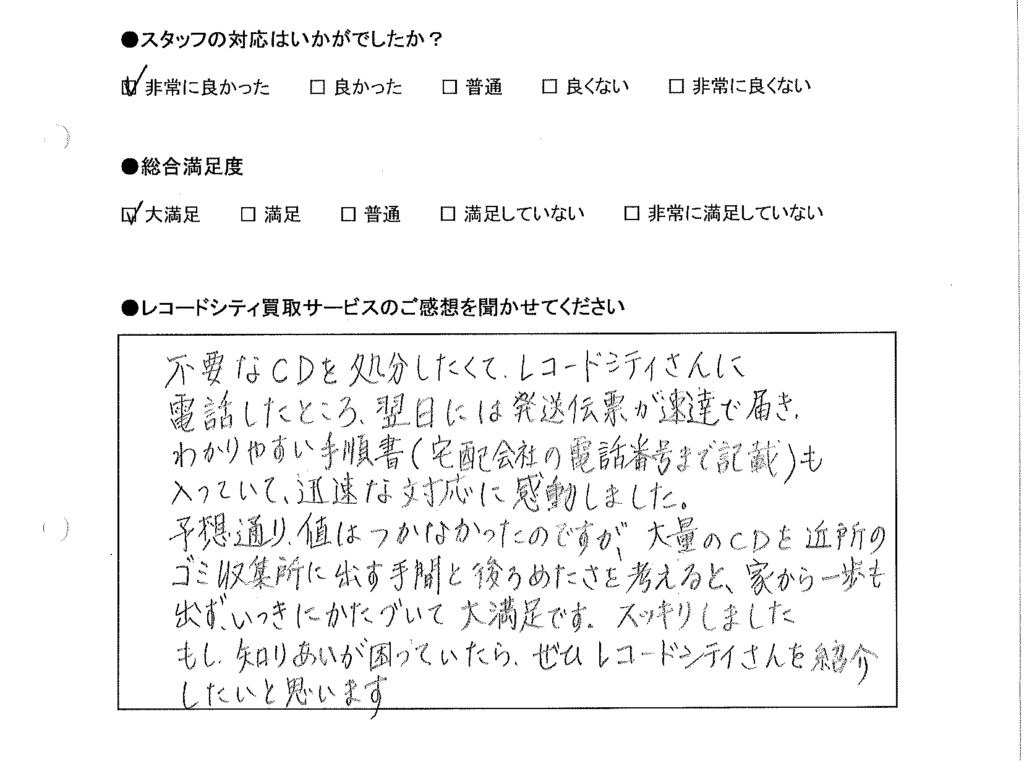 ●スタッフの対応はいかがでしたか？
☑ 非常に良かった □ 良かった □ 普通 □ 良くない □ 非常に良くない
●総合満足度
☑ 大満足 □ 満足 □ 普通 □ 満足していない □ 非常に満足していない
●レコードシティ買取サービスのご感想を聞かせてください
不要なCDを処分したくて、レコードシティさんに
電話したところ、翌日には発送伝票が速達で届き、
わかりやすい手順書(宅配会社の電話番号まで記載)も
入っていて、迅速な対応に感動しました。
予想通り、値はつかなかったのですが、大量のCDを近所の
ゴミ収集所に出す手間と後ろめたさを考えると、家から一歩も
出ず、いっきにかたづいて大満足です。スッキリしました
もし、知りあいが困っていたら、ぜひレコードシティさんを紹介
したいと思います